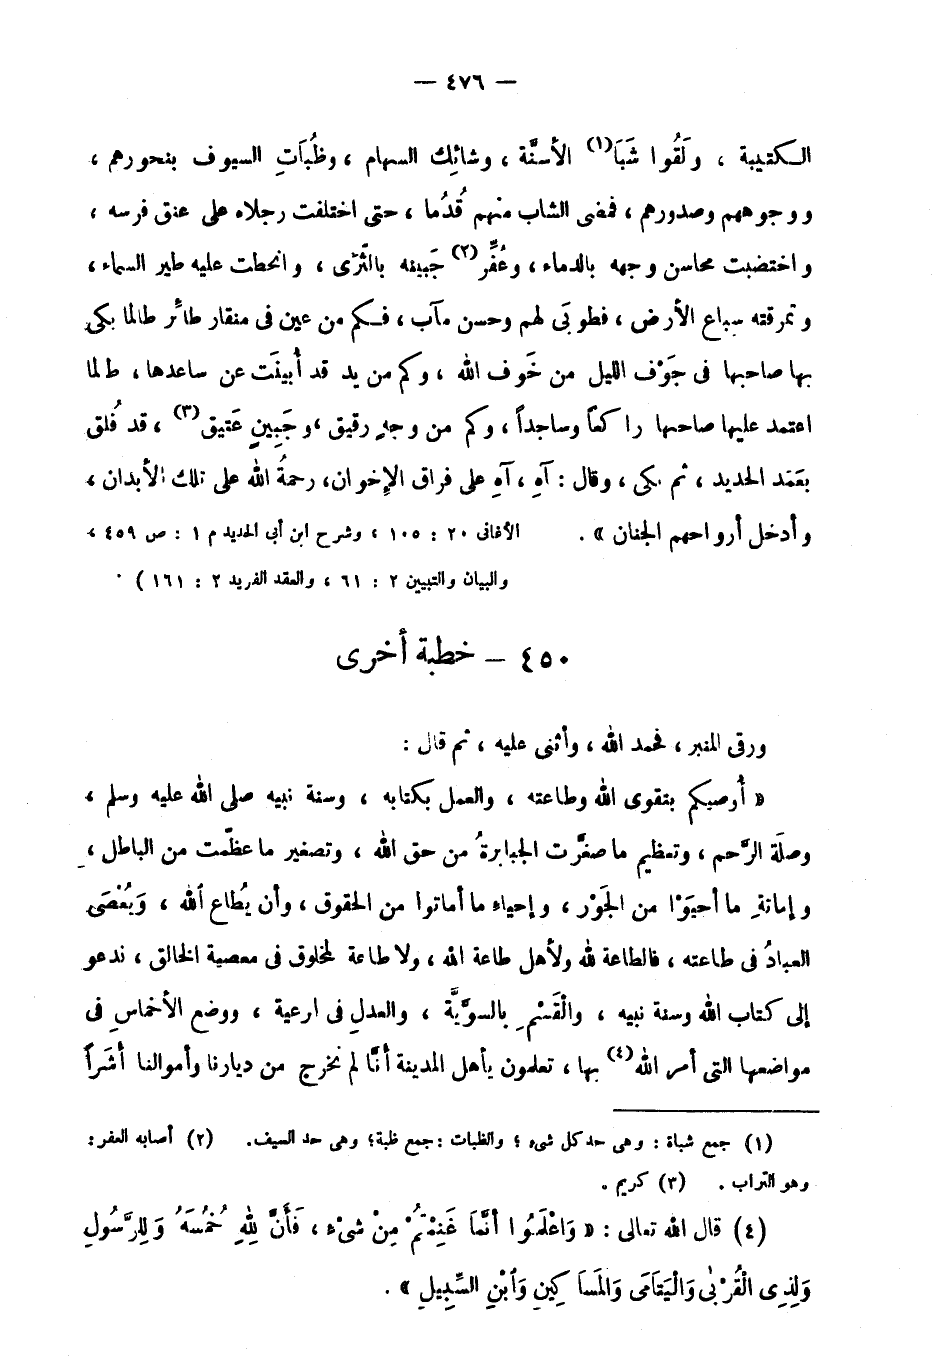 — ٤٧٦ —
الكتيبة ، ولَقُوا شَبَا(١) الأسنَّة ، وشائك السهام ، وظُبَاتِ السيوف بنحورهم ،
ووجوههم وصدورهم ، فمضى الشاب منهم قُدُما ، حتى اختلفت رجلاه على عنق فرسه ،
واختضبت محاسن وجهه بالدماء ، وعُفِّر(٢) جَبينه بالثَّرَى ، وانحطت عليه طير السماء ،
وتمزقته سباع الأرض ، فطوبَى لهم وحسن مآب ، فكم من عين فى منقار طائر طالما بكى
بها صاحبها فى جَوْف الليل من خَوف الله ، وكم من يد قد أُبينَت عن ساعدها ، طالما
اعتمد عليها صاحبها راكعاً وساجداً ، وكم من وجهٍ رقيق ، وجَبينٍ عَتيق(٣) ، قد فُلق
بعَمَد الحديد ، ثم بكى ، وقال : آهِ ، آهِ على فراق الإخوان، رحمةُ الله على تلك الأبدان ،
وأدخل أرواحهم الجنان » . الأغانى ٢٠ : ١٠٥ ، وشرح ابن أبى الحديد م ١ : ص ٤٥٩ ،
والبيان والتبيين ٢ : ٦١ ، والعقد الفريد ٢ : ١٦١ ) .
٤٥٠ — خطبة أخرى
ورقى المنبر ، فحمد الله ، وأثنى عليه ، ثم قال :
« أُوصيكم بتقوى الله وطاعته ، والعمل بكتابه ، وسنة نبيه صلى الله عليه وسلم ،
وصلَة الرَّحم ، وتعظيم ما صغَّرت الجبابرةُ من حق الله ، وتصغير ما عظّمت من الباطل ،
وإماتةِ ما أحيَوْا من الجَوْر ، وإحياء ما أماتوا من الحقوق ، وأن يُطاع الله ، وَيُعْصَى
العبادُ فى طاعته ، فالطاعة لله ولأهل طاعة الله ، ولا طاعة لمخلوق فى معصية الخالق ، ندعو
إلى كتاب الله وسنة نبيه ، والْقَسْمِ بالسوَّيَّة ، والعدلِ فى ارعية ، ووضع الأخماسِ فى
مواضعها التى أمر الله(٤) بها ، تعلمون يأهل المدينة أنَّا لم نخرج من ديارنا وأموالنا أَشَراً
(١) جمع شباة : وهى حد كل شىء ؛ والظبات : جمع ظبة؛ وهى حد السيف. (٢) أصابه العفر :
وهو التراب . (٣) كريم .
(٤) قال الله تعالى : « وَاعْلَمُوا أَنَّمَا غَنِمْتُمْ مِنْ شَىْءٍ ، فَأَنَّ لِلهِ خُمُسَهُ وَلِلرَّسُولِ
وَلِذِى الْقُرْبَى وَالْيَتَامَى وَالْمَسَاكِينِ وَابْنِ السَّبِيلِ » .